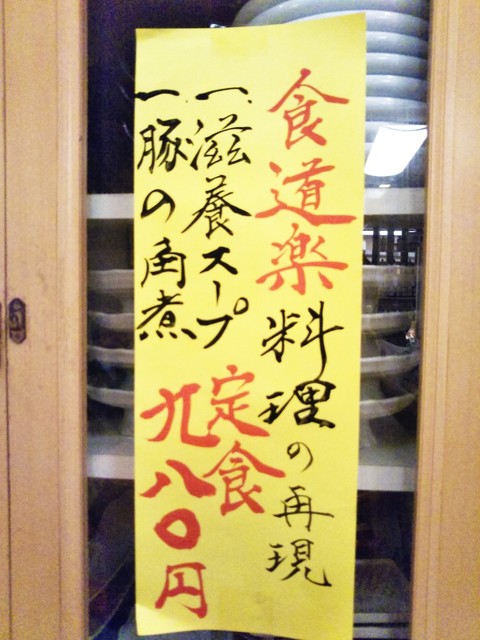 食道楽料理の再現
一、滋養スープ
一、豚の角煮
定食
九八〇円